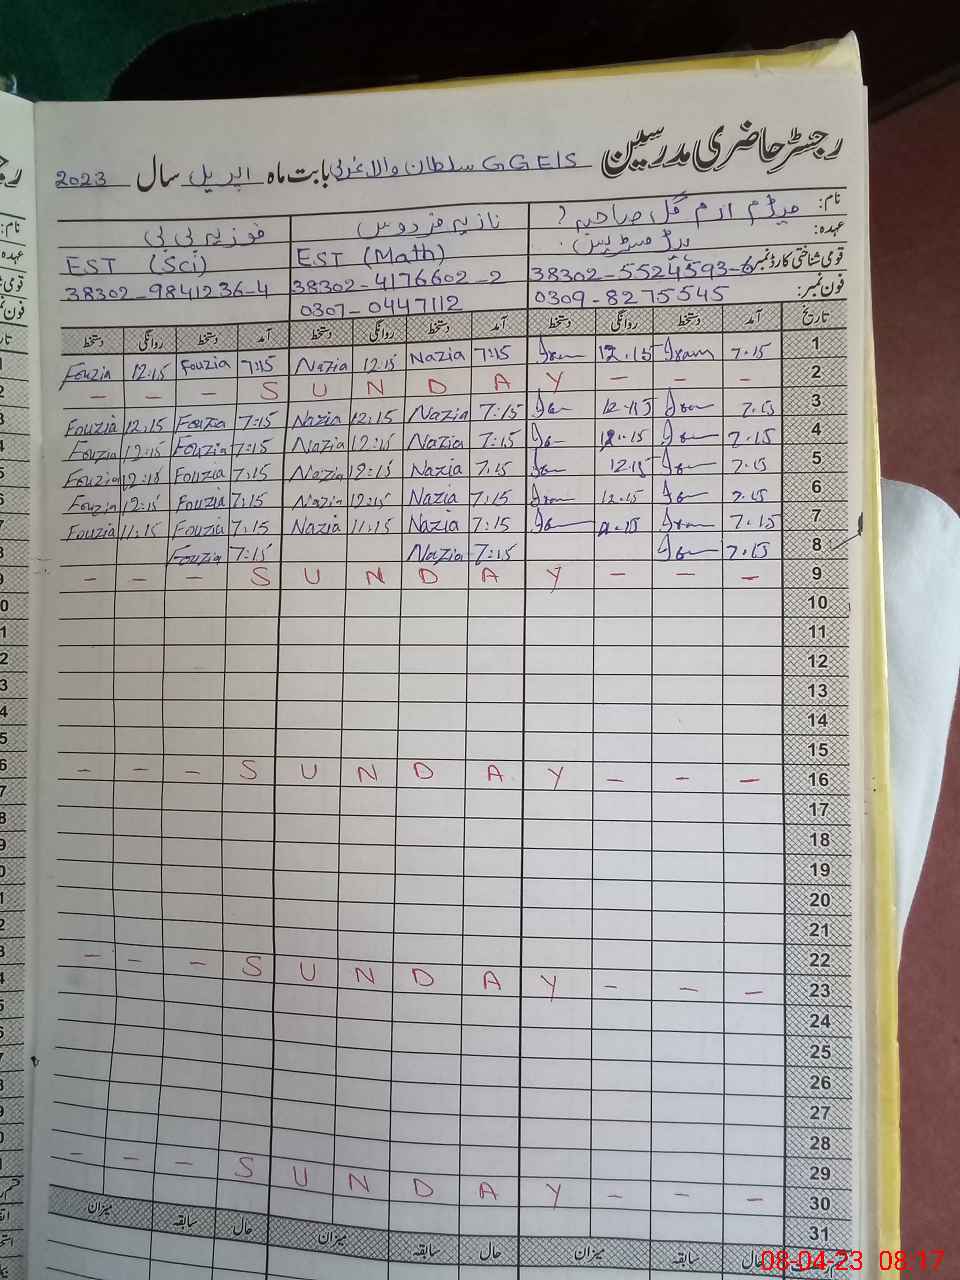 رجسٹر حاضری مدرسین GGEIS سلطان والا غربی بابت ماہ اپریل سال 2023
نام: میڈم ارم گل صاحبہ نازیہ فردوس فوزیہ بی بی
عہدہ: ہیڈ مسٹریس EST (Math) EST (Sci)
قومی شناختی کارڈ نمبر 38302-5524593-6 38302-4176602-2 38302-9841236-4
فون نمبر: 0309-8275545 0307-0447112
تاریخ آمد دستخط روانگی دستخط آمد دستخط روانگی دستخط آمد دستخط روانگی دستخط
1 7.15 Iram 12.15 Iram 7:15 Nazia 12:15 Nazia 7:15 Fouzia 12:15 Fouzia
2 - - - S U N D A Y - - -
3 7.15 12.15 7:15 Nazia 12:15 Nazia 7:15 Fouzia 12:15 Fouzia
4 7.15 12.15 7:15 Nazia 12:15 Nazia 7:15 Fouzia 12:15 Fouzia
5 7.15 12.15 7.15 Nazia 12:15 Nazia 7:15 Fouzia 12:15 Fouzia
6 7.15 12.15 7:15 Nazia 12:15 Nazia 7:15 Fouzia 12:15 Fouzia
7 7.15 Iram 11.15 7:15 Nazia 11:15 Nazia 7:15 Fouzia 11:15 Fouzia
8 7.15 7:15 Nazia 7:15 Fouzia
9 - - - S U N D A Y - - -
10
11
12
13
14
15
16 - - - S U N D A Y - - -
17
18
19
20
21
22
23 - - - S U N D A Y - - -
24
25
26
27
28
29
30 - - - S U N D A Y - - -
31
حال سابقہ میزان حال سابقہ میزان حال سابقہ میزان
08-04-23 08:17